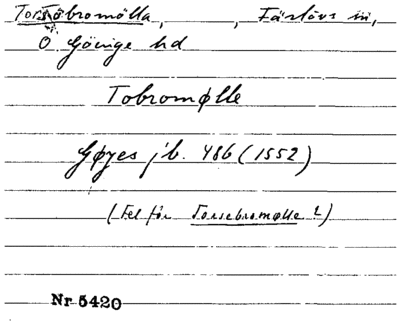 Torstöbromölla, , Färlövs sn,
Ö Göinge hd
Tobromølle
Gøyes jb. 486 (1552)
(Fel för Torsebromølle?)
Nr 5420